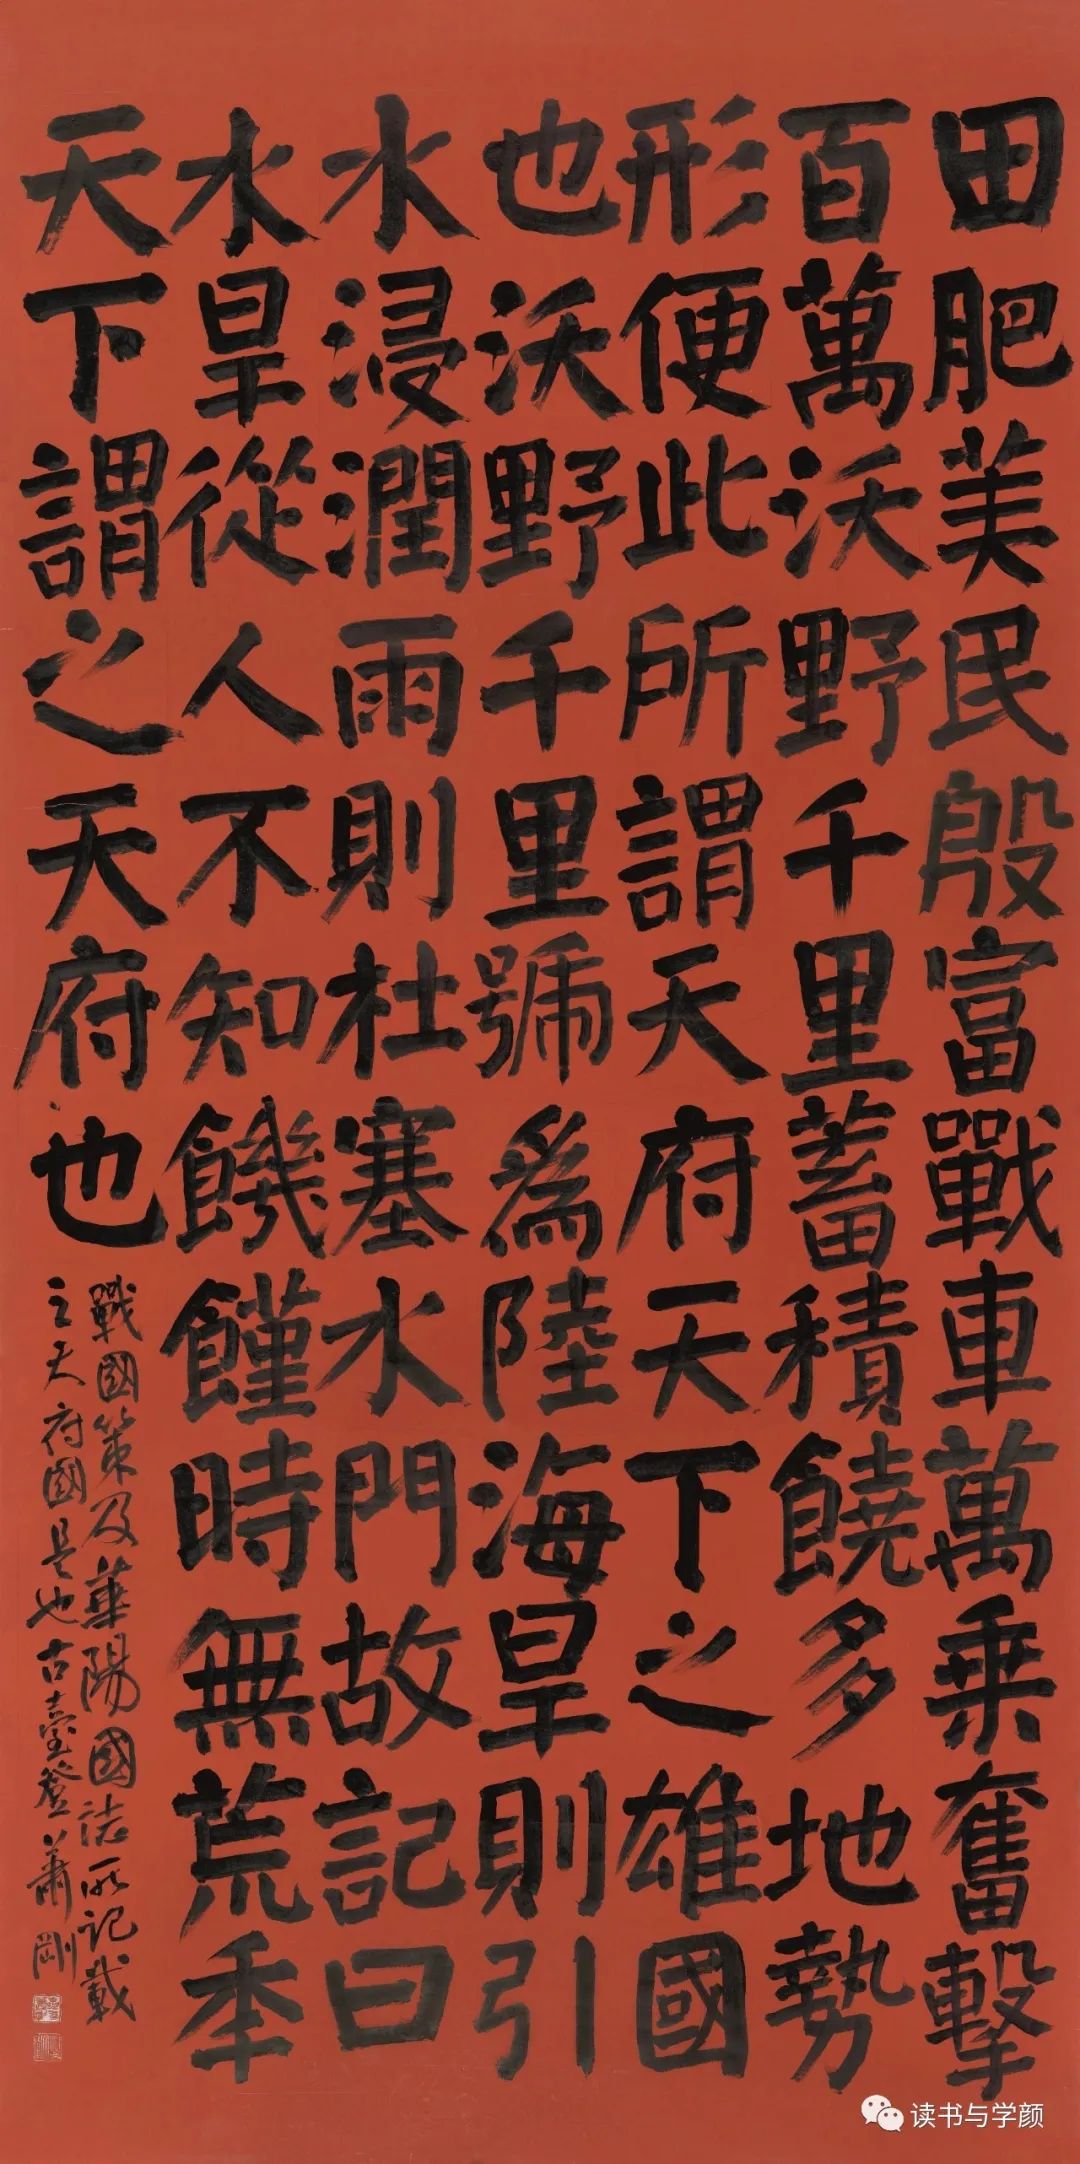 田肥美民殷富戰車萬乗奮擊
百萬沃野千里蓄積饒多地勢
形便此所謂天府天下之雄國
也沃野千里號爲陸海旱則引
水浸潤雨則杜塞水門故記曰
水旱從人不知饑饉時無荒年
天下謂之天府也
戰國策及華陽國誌所記載
之天府國是也古臺登蕭剛
读书与学颜